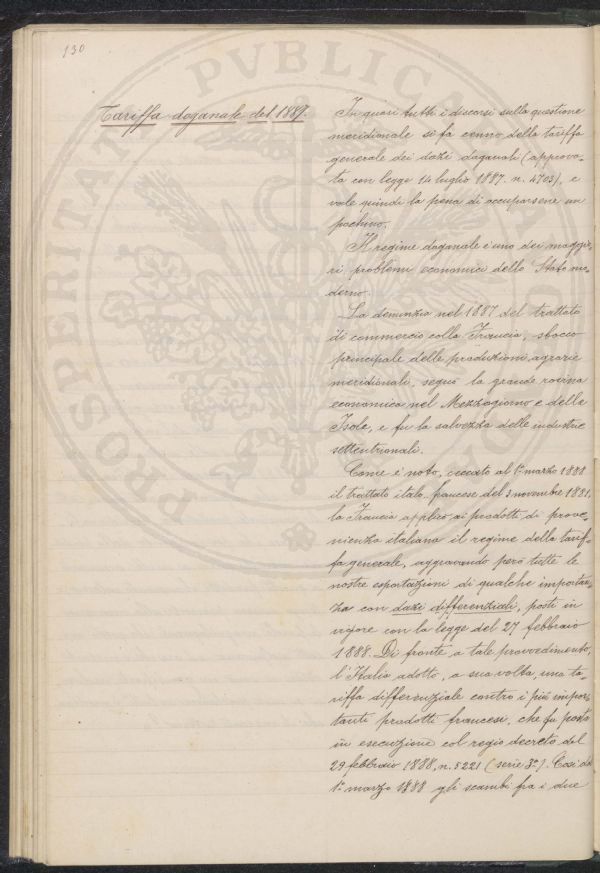 130
Tariffa doganale del 1887.
In quasi tutti i discorsi sulla questione
meridionale si fa cenno della tariffa
generale dei dazi doganali (approva-
ta con legge 14 luglio 1887. n. 4703), e
vale quindi la pena di occuparsene un
pochino.
Il regime doganale è uno dei maggio-
ri problemi economici dello Stato mo-
derno.
La denunzia nel 1887 del trattato
di commercio colla Francia, sbocco
principale delle produzioni agrarie
meridionali, segnò la grande rovina
economica nel Mezzogiorno e delle
Isole, e fu la salvezza delle industrie
settentrionali.
Come è noto, cessato al 1° marzo 1888
il trattato italo-francese del 3 novembre 1881,
la Francia applicò ai prodotti di prove-
nienza italiana il regime della tarif-
fa generale, aggravando però tutte le
nostre esportazioni di qualche importan-
za con dazi differenziali, posti in
vigore con la legge del 27 febbraio
1888. Di fronte a tale provvedimento,
l'Italia adottò, a sua volta, una ta-
riffa differenziale contro i più impor-
tanti prodotti francesi, che fu posta
in esecuzione col regio decreto del
29 febbraio 1888, n. 5221 (serie 3ª). Così dal
1° marzo 1888 gli scambi fra i due
PROSPERITATI PVBLICAE